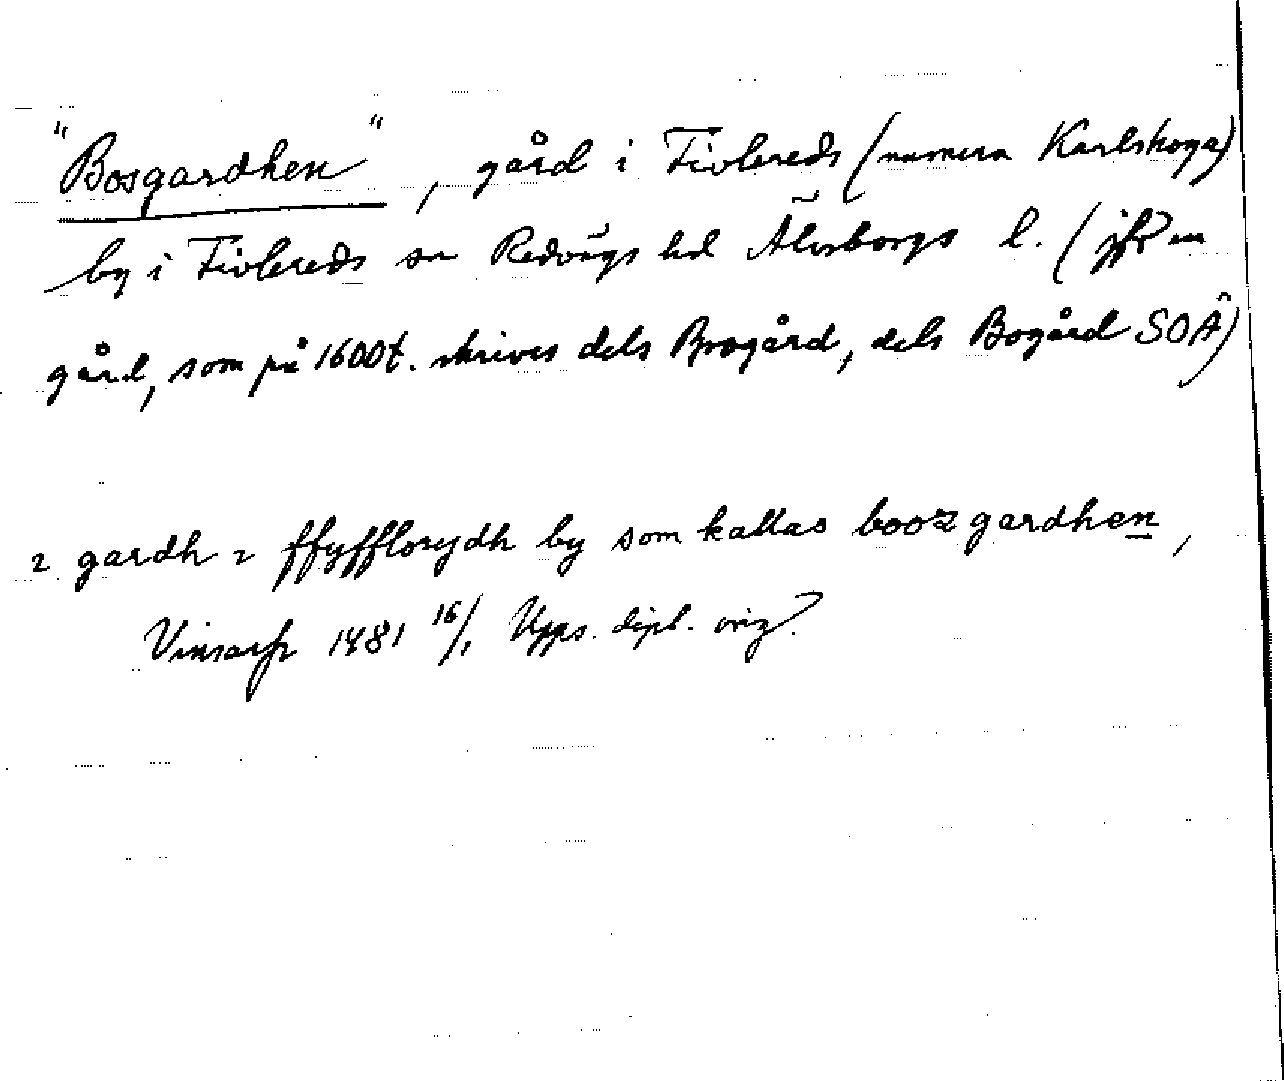 "Bosgardhen", gård i Fivlereds (numera Karlskoga)
by i Fivlereds sn Redvägs hd Älvsborgs l. (jfr en
gård, som på 1600t. skrives dels Brogård, dels Bogård SOÄ)
2 gardh 2 ffyfflorydh by som kallas booz gardhen,
Vinsarp 1481 16/1 Upps. dipl. orig.